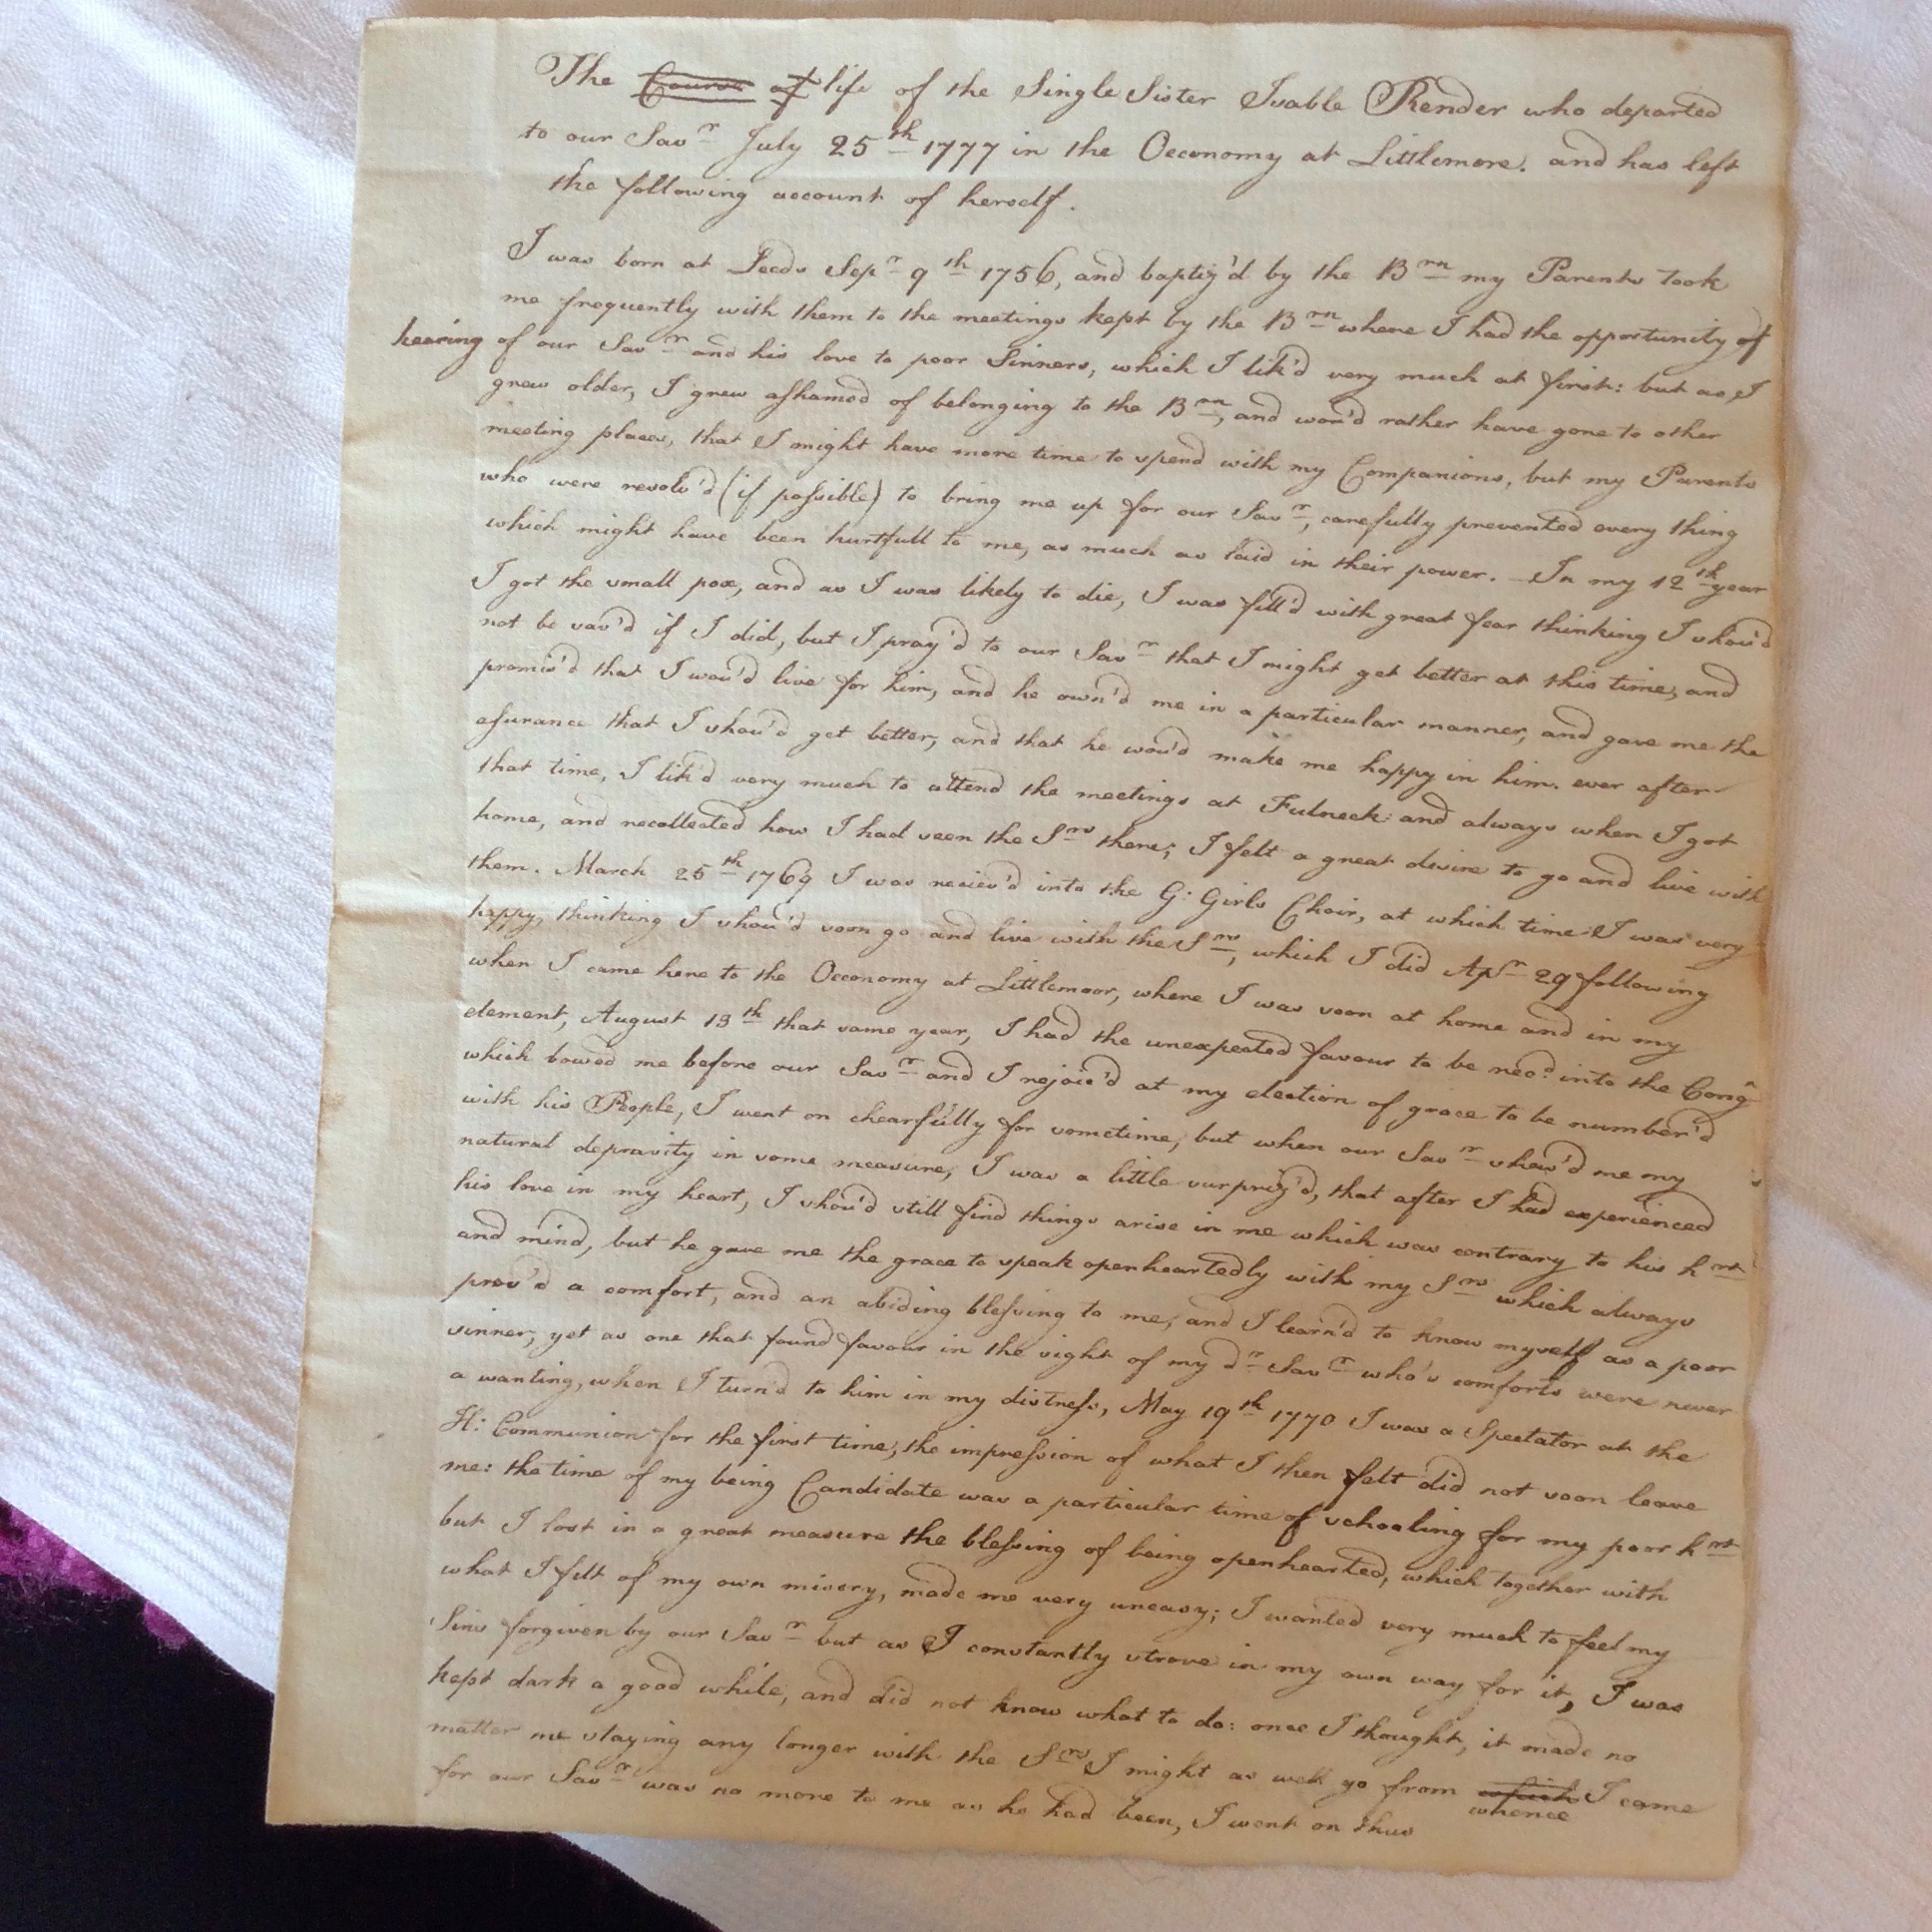 The Course of life of the Single Sister Isable Render who departed
to our Savr July 25th 1777 in the Oeconomy at Littlemore. and has left
the following account of herself.
I was born at Leeds Sepr 9th 1756, and baptiz'd by the Brn my Parents took
me frequently with them to the meetings kept by the Brn where I had the opportunity of
hearing of our Savr and his love to poor Sinners, which I lik'd very much at first: but as I
grew older, I grew ashamed of belonging to the Brn, and wou'd rather have gone to other
meeting places, that I might have more time to spend with my Companions, but my Parents
who were resolv'd (if possible) to bring me up for our Savr, carefully prevented every thing
which might have been hurtfull to me, as much as laid in their power. - In my 12th year
I got the small pox, and as I was likely to die, I was fill'd with great fear thinking I shou'd
not be sav'd if I did, but I pray'd to our Savr that I might get better at this time, and
promis'd that I wou'd live for him, and he own'd me in a particular manner, and gave me the
asurance that I shou'd get better, and that he wou'd make me happy in him. ever after
that time, I lik'd very much to attend the meetings at Fulneck: and always when I got
home, and recollected how I had seen the Srs there; I felt a great desire to go and live with
them. March 25th 1769 I was reciev'd into the G: Girls Choir, at which time I was very
happy, thinking I shou'd soon go and live with the Srs, which I did Apr 29 following
when I came here to the Oeconomy at Littlemoor, where I was soon at home and in my
element, August 13th that same year, I had the unexpected favour to be recd into the Cong
which bowed me before our Savr and I rejoic'd at my election of grace to be number'd
with his People, I went on chearfully for sometime, but when our Savr shew'd me my
natural depravity in some measure, I was a little surpriz'd, that after I had experienced
his love in my heart, I shou'd still find things arise in me which was contrary to his hrt
and mind, but he gave me the grace to speak openheartedly with my Srs which always
prov'd a comfort, and an abiding blessing to me, and I learn'd to know myself as a poor
sinner, yet as one that found favour in the sight of my dr Savr who's comforts were never
a wanting, when I turn'd to him in my distress, May 19th 1770 I was a Spectator at the
H: Communion for the first time, the impression of what I then felt did not soon leave
me: the time of my being Candidate was a particular time of schooling for my poor hrt
but I lost in a great measure the blessing of being openhearted, which together with
what I felt of my own misery, made me very uneasy; I wanted very much to feel my
Sins forgiven by our Savr but as I constantly strove in my own way for it, I was
kept dark a good while, and did not know what to do: once I thought, it made no
matter me staying any longer with the Srs I might as well go from which I came
whence
for our Savr was no more to me as he had been, I went on thus